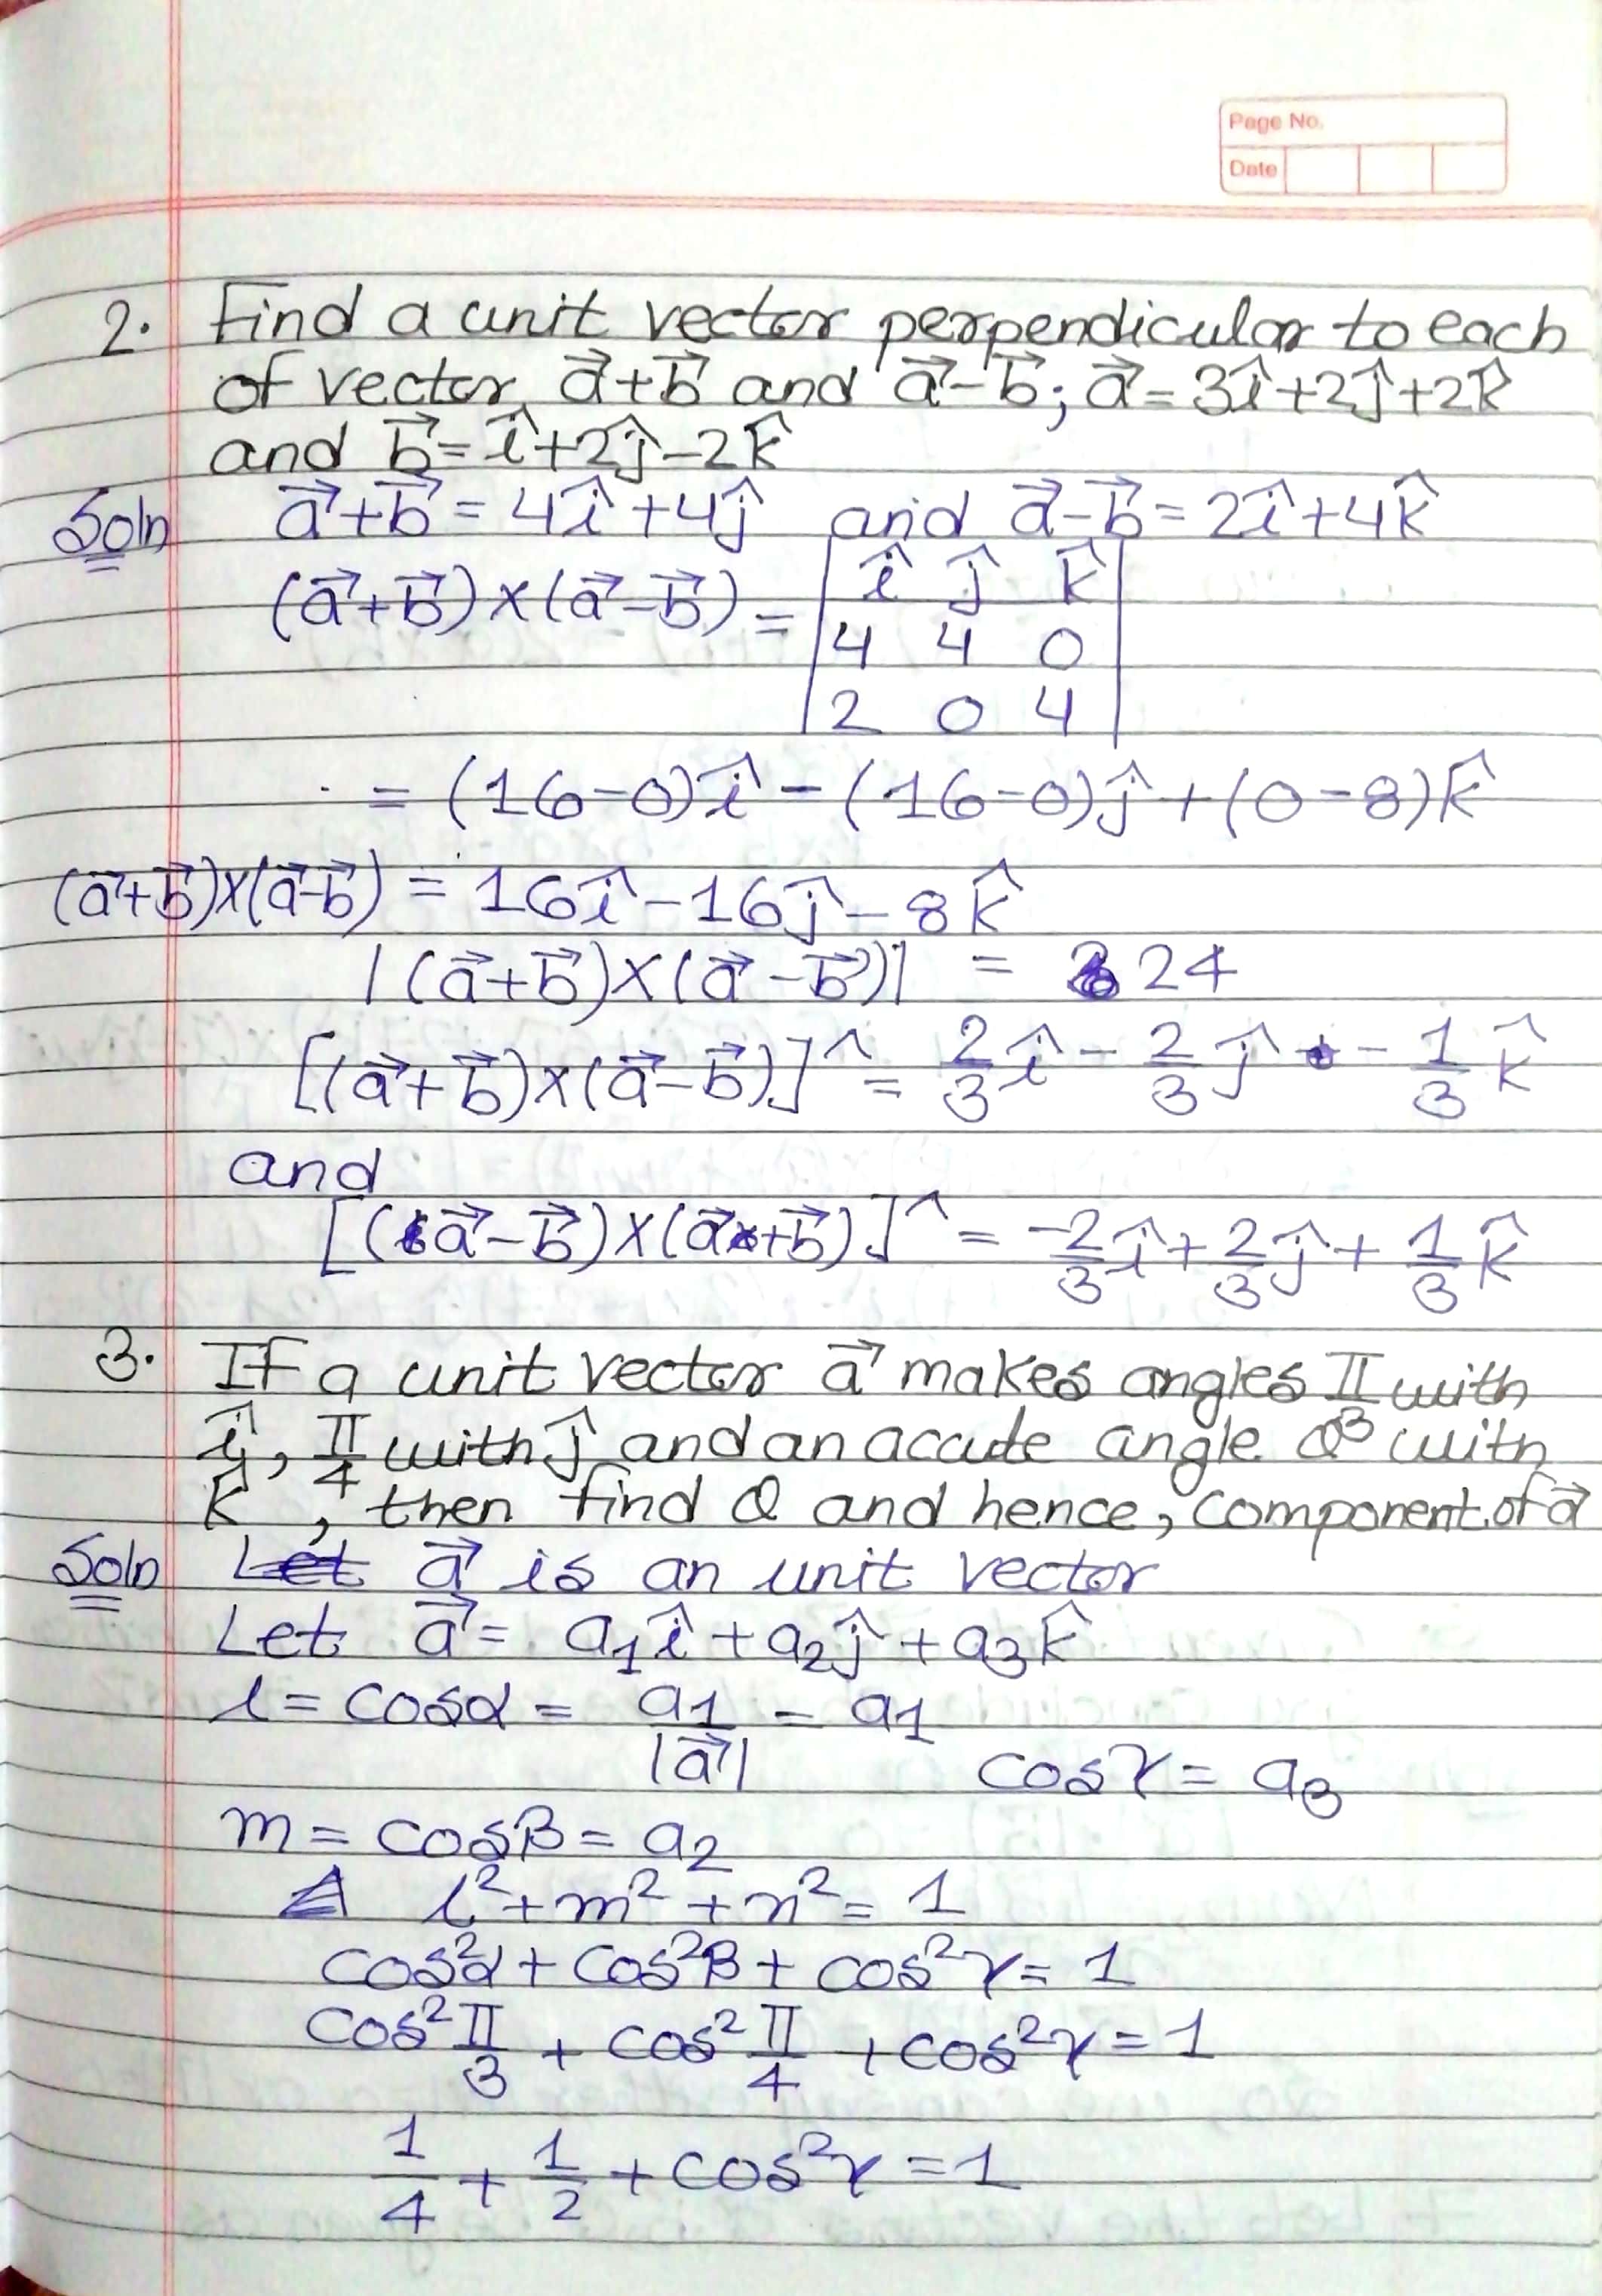 Page No.
Date
2. Find a unit vector perpendicular to each
of vector a⃗+b⃗ and a⃗-b⃗; a⃗=3î+2ĵ+2k̂
and b⃗=î+2ĵ-2k̂
Soln a⃗+b⃗=4î+4ĵ and a⃗-b⃗=2î+4k̂
(a⃗+b⃗)×(a⃗-b⃗)= | î ĵ k̂ |
| 4 4 0 |
| 2 0 4 |
= (16-0)î-(16-0)ĵ+(0-8)k̂
(a⃗+b⃗)×(a⃗-b⃗) = 16î-16ĵ-8k̂
|(a⃗+b⃗)×(a⃗-b⃗)| = 24
[(a⃗+b⃗)×(a⃗-b⃗)]^ = 2/3 î - 2/3 ĵ - 1/3 k̂
and
[(a⃗-b⃗)×(a⃗+b⃗)]^ = -2/3 î + 2/3 ĵ + 1/3 k̂
3. If a unit vector a⃗ makes angles π/3 with
î, π/4 with ĵ and an accute angle θ with
k̂, then find θ and hence, component of a⃗
Soln Let a⃗ is an unit vector
Let a⃗= a₁î+a₂ĵ+a₃k̂
l=cosα= a₁/|a⃗| = a₁
cosγ= a₃
m=cosβ= a₂
l²+m²+n²=1
cos²α+cos²β+cos²γ=1
cos²π/3 + cos²π/4 + cos²γ=1
1/4 + 1/2 + cos²γ=1